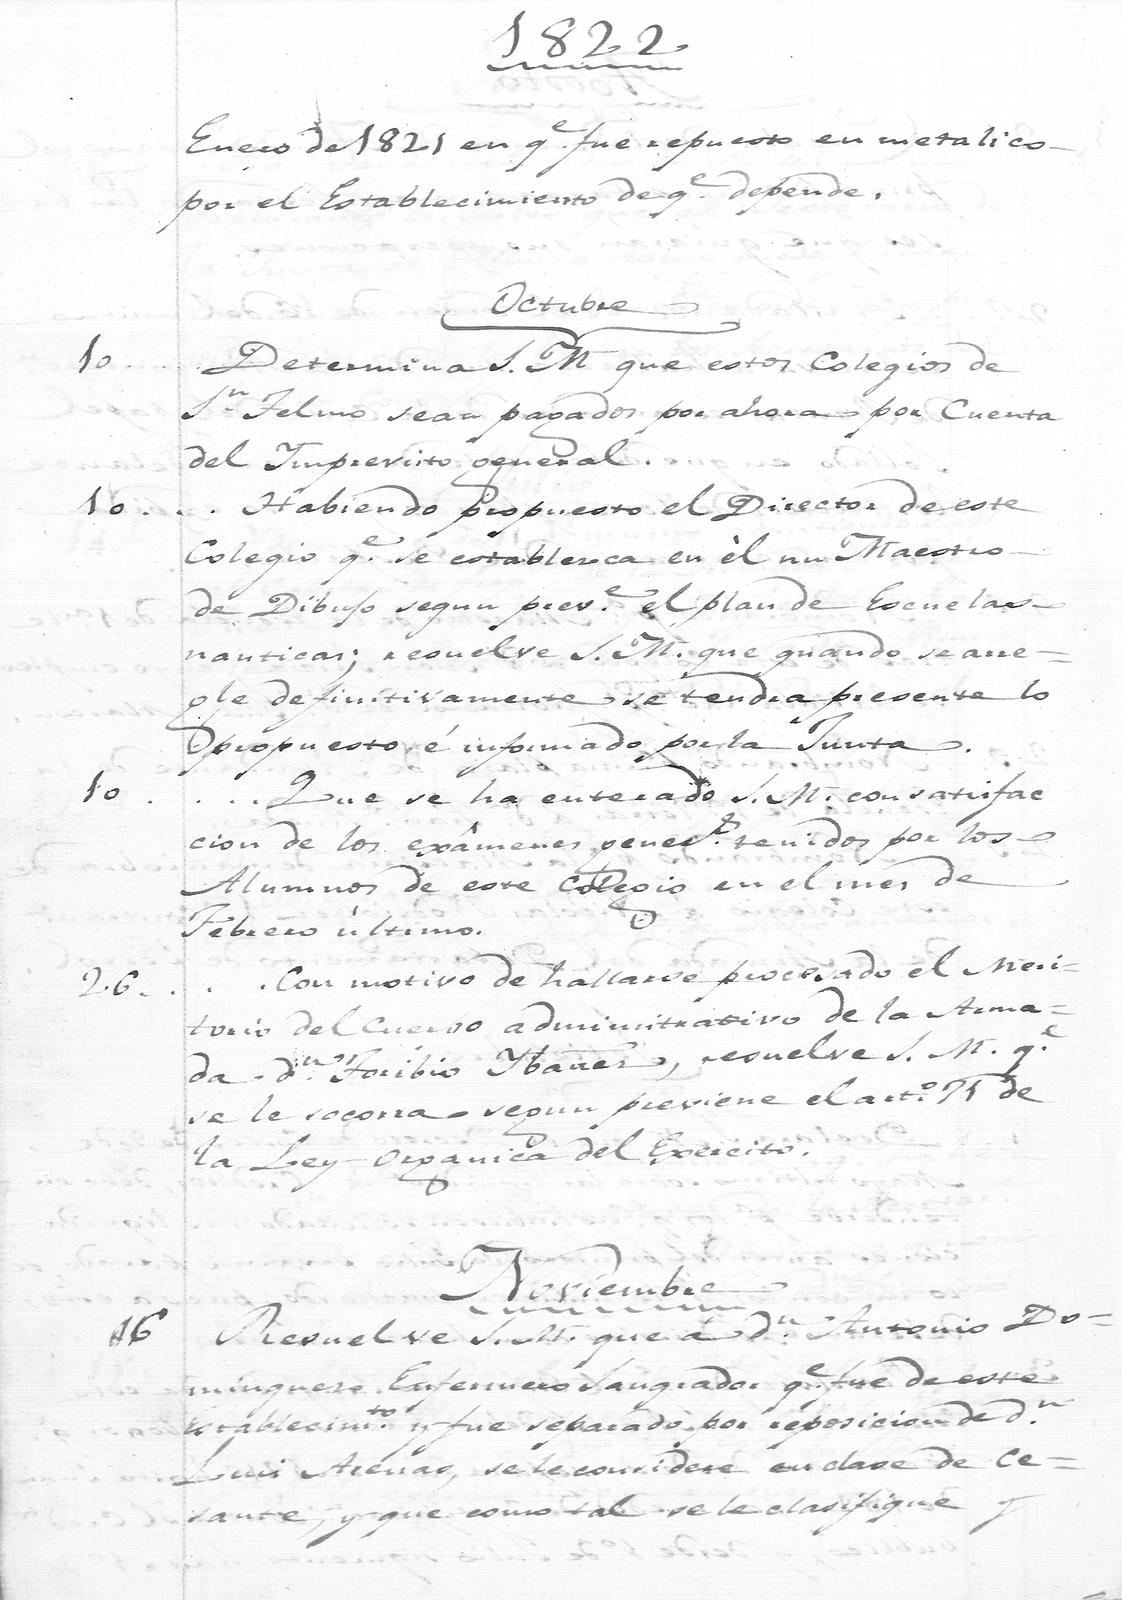 1822
Enero de 1821 en qe. fue repuesto en metalico
por el Establecimiento de qe. depende.
Octubre
10 . . . . Determina S. M. que estos Colegios de
Sn. Telmo sean pagados por ahora por Cuenta
del Imprevisto general.
10 . . . Habiendo propuesto el Director de este
Colegio qe. se establezca en èl un Maestro
de Dibujo segun preve. el plan de Escuelas
nauticas; resuelve S. M. que quando se arre=
gle definitivamente se tendra presente lo
propuesto é informado por la Junta.
10 . . . . Que se ha enterado S. M. con satisfac
cion de los exâmenes geners. tenidos por los
Alumnos de este Colegio en el mes de
Febrero ùltimo.
26 . . . . Con motivo de hallarse procesado el Meri=
torio del Cuerpo administrativo de la Arma=
da dn. Toribio Ybañez, resuelve S. M. qe.
se le socorra segun previene el arto. 75 de
la Ley Organica del Exercito.
Noviembre
16 Resuelve S. M. que á dn. Antonio Do=
minguez Enfermero Sangrador qe. fue de este
Establecimto. y fue separado por reposicion de dn.
Luis Arenas, se le considere en clase de Ce=
sante, y que como tal se le clasifique y